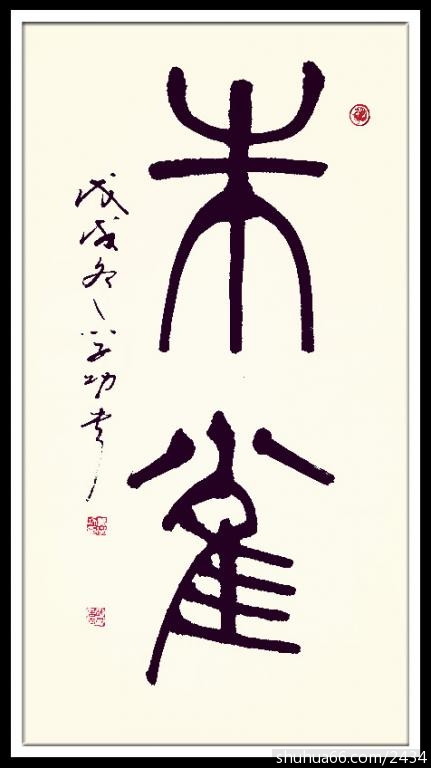 朱雀
戊戌冬学功书
shuhua66.com/2434